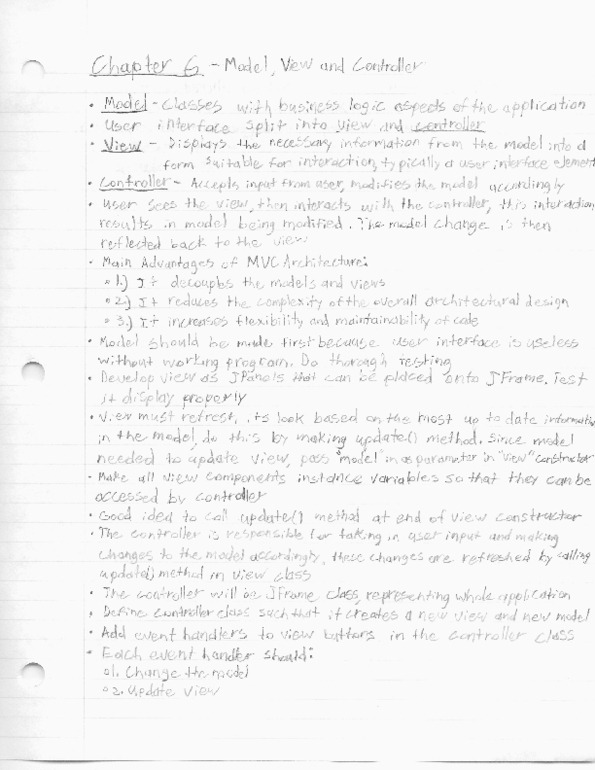 Chapter 6 - Model, View and Controller
• Model - Classes with business logic aspects of the application
• User interface split into view and controller
• View - Displays the necessary information from the model into a
form suitable for interaction, typically a user interface element
• Controller - Accepts input from user, modifies the model accordingly
• User sees the view, then interacts with the controller, this interaction
results in model being modified. The model change is then
reflected back to the view
• Main Advantages of MVC Architecture:
◦ 1.) It decouples the models and views
◦ 2.) It reduces the complexity of the overall architectural design
◦ 3.) It increases flexibility and maintainability of code
• Model should be made first because user interface is useless
without working program. Do thorough testing
• Develop view as JPanels that can be placed onto JFrame. Test
it display properly
• View must refresh its look based on the most up to date informatio
in the model, do this by making update() method. Since model
needed to update view, pass "model" in as parameter in "View" constructor
• Make all view components instance variables so that they can be
accessed by controller
• Good idea to call update() method at end of view constructor
• The controller is responsible for taking in user input and making
changes to the model accordingly, these changes are refreshed by calling
update() method in view class
• The controller will be JFrame class, representing whole application
• Define controller class such that it creates a new view and new model
• Add event handlers to view buttons in the controller class
• Each event handler should:
◦ 1. Change the model
◦ 2. Update view